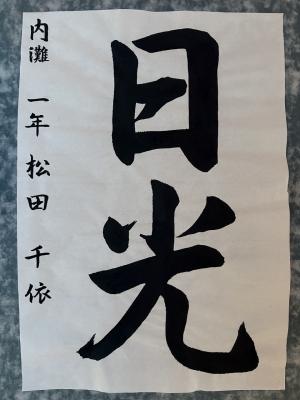 日光
内灘 一年 松田 千依